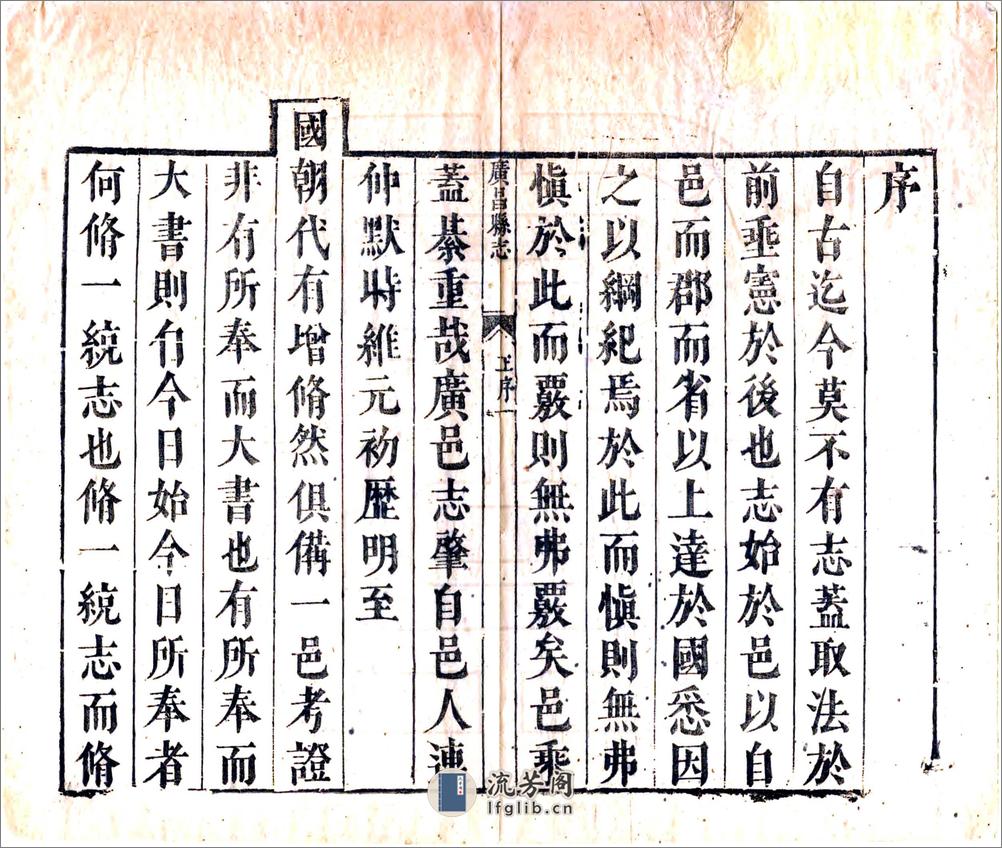 序
自古迄今莫不有志蓋取法於
前垂憲於後也志始於邑以自
邑而郡而省以上達於國悉因
之以綱紀焉於此而愼則無弗
愼於此而覈則無弗覈矣邑乘
廣昌縣志
序一
蓋綦重哉廣邑志肇自邑人連
仲默時維元初歷明至
國朝代有增脩然俱備一邑考證
非有所奉而大書也有所奉而
大書則自今日始今日所奉者
何脩一統志也脩一統志而脩
流芳阁
lfglib.cn